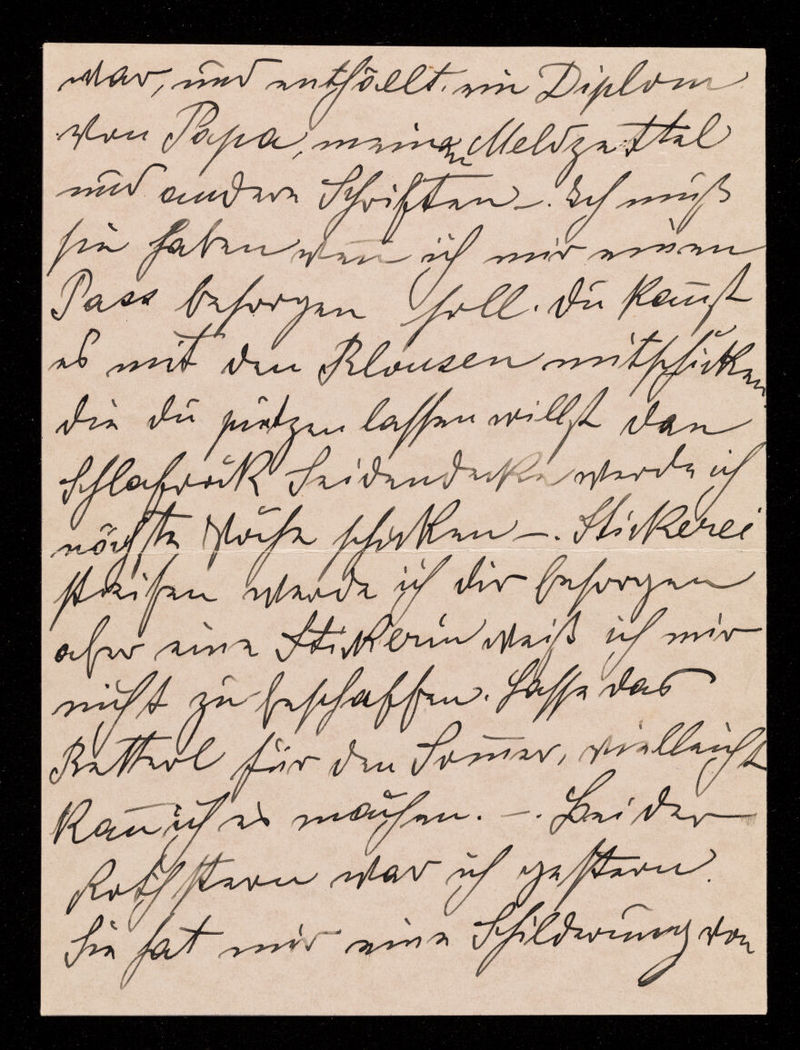 war, und enthällt ein Diplom
von Papa, meinen Meldzettel
und andere Schriften –. Ich muß
sie haben wenn ich mir einen
Pass besorgen soll. Du kannst
es mit den Blousen mitschicken
die du putzen lassen willst den
Schlafrock Seidendecke werde ich
nächste Woche schicken –. Stickerei
streifen werde ich dir besorgen
aber eine Stickerin weiß ich mir
nicht zu beschaffen. Lasse das
Betterl für den Sommer, vielleicht
kann ich es machen. –. Bei der
Rothstern war ich gestern.
Sie hat mir eine Schilderung von